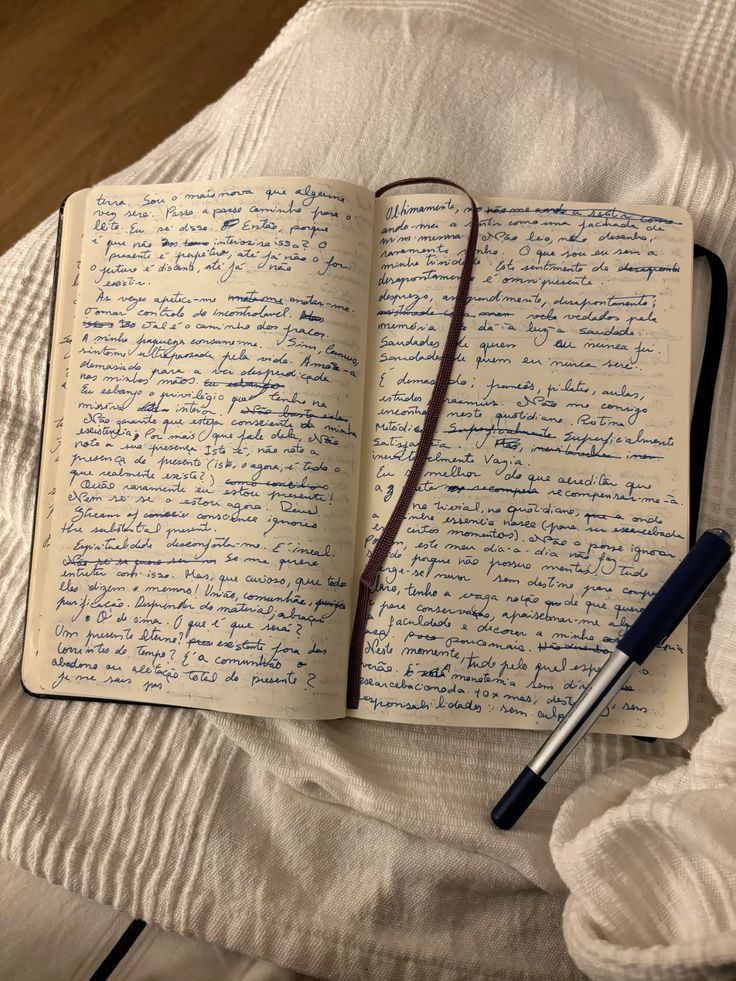 terra. Sou o mais nova que alguma
vez serei. Passo a passo caminho para o
leito. Eu sei disso. Então, porque
é que não interiorizo isso? O
presente é perpétuo, até já não o for.
o futuro é distante, até já não
existir.
Às vezes apetece-me matar-me.
Tomar controlo do incontrolável.
Tal é o caminho dos fracos.
A minha fraqueza consume-me. Sim, Camus,
sintome ultrapassada pela vida. Amo-a
demasiado para a ver desperdiçada
nas minhas mãos.
Eu esbanjo o privilégio que tenho na
miséria interior.
Não garanto que esteja consciente da minha
existência. Por mais que fale dela, Não
noto a sua presença. Isto é, não noto a
presença do presente (isto, o agora, é tudo o
que realmente existe?)
Quão raramente eu estou presente!
Nem sei se o estou agora. Deus.
Stream of conscience ignores
the substantial present.
Espiritualidade desconforta-me. É irreal.
Se me quero
entreter com isso. Mas, que curioso, que todos
eles dizem o mesmo! União, comunhão,
purificação. Desprender do material; abraçar
o O de cima. O que é que será?
Um presente eterno? existente fora das
correntes do tempo? É a comunhão o
abandono ou aceitação total do presente?
Je ne sais pas
Ultimamente, não me ando a sentir como
ando-me a sentir como uma fachada de
mim mesma. Não leio, não desenho,
raramente O que sou eu sem a
minha trindade? Este sentimento de
desapontamento é omnipresente.
desprezo, arrependimento, desapontamento;
velados pela
memória dá-a luz-a saudade.
Saudades de quem eu nunca fui.
Saudades de quem eu nunca serei.
É demasiado; francês, pilates, aulas,
estudos Não me consigo
encontrar neste quotidiano. Rotina.
Metódica. Superficialmente
satisfatória.
inevitavelmente Vazia.
Eu sei melhor do que acreditar que
recompensar-me-á.
trivial, no quotidiano, onde
a minha essência nasce (para ser exacerbada
em certos momentos). Não a posso ignorar
Porém, este meu dia-a-dia não faz
sentido porque não possuo mentes. Tudo
sem destino, para comparar
Claro, tenho a vaga noção de que quero
para conservação, apaixonar-me
a faculdade e decorar a minha
casa. pouco mais.
Neste momento, tudo pelo qual espero é a
verão. É monotonia sem
exarcebacionada 10x mas,
responsabilidades: sem culpa, sem